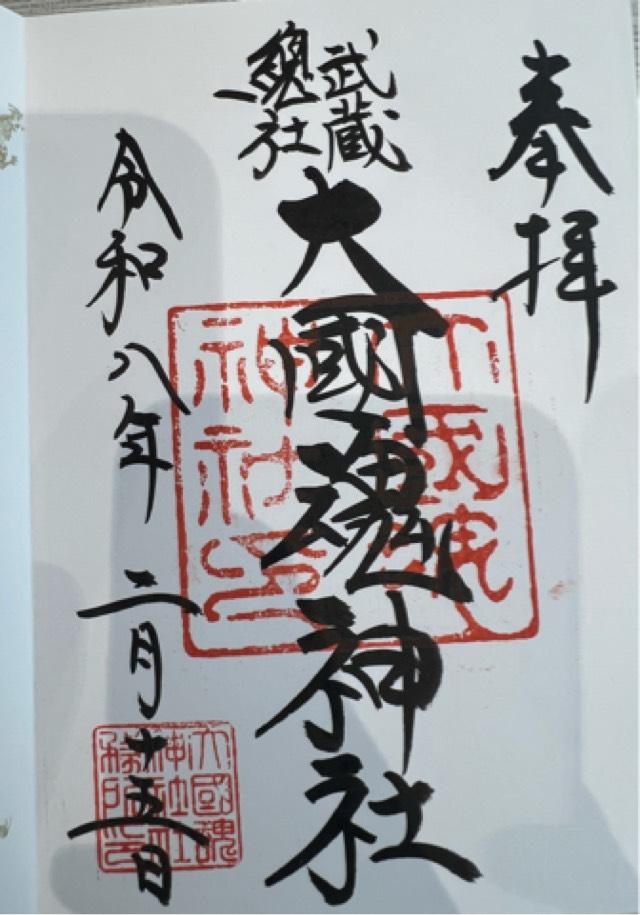 奉拝
武蔵
總社
大國魂神社
令和八年 二月十五日
大國魂
神社印
大國魂
神社社